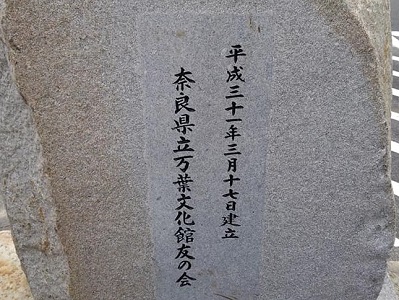 平成三十一年三月十七日建立
奈良県立万葉文化館友の会